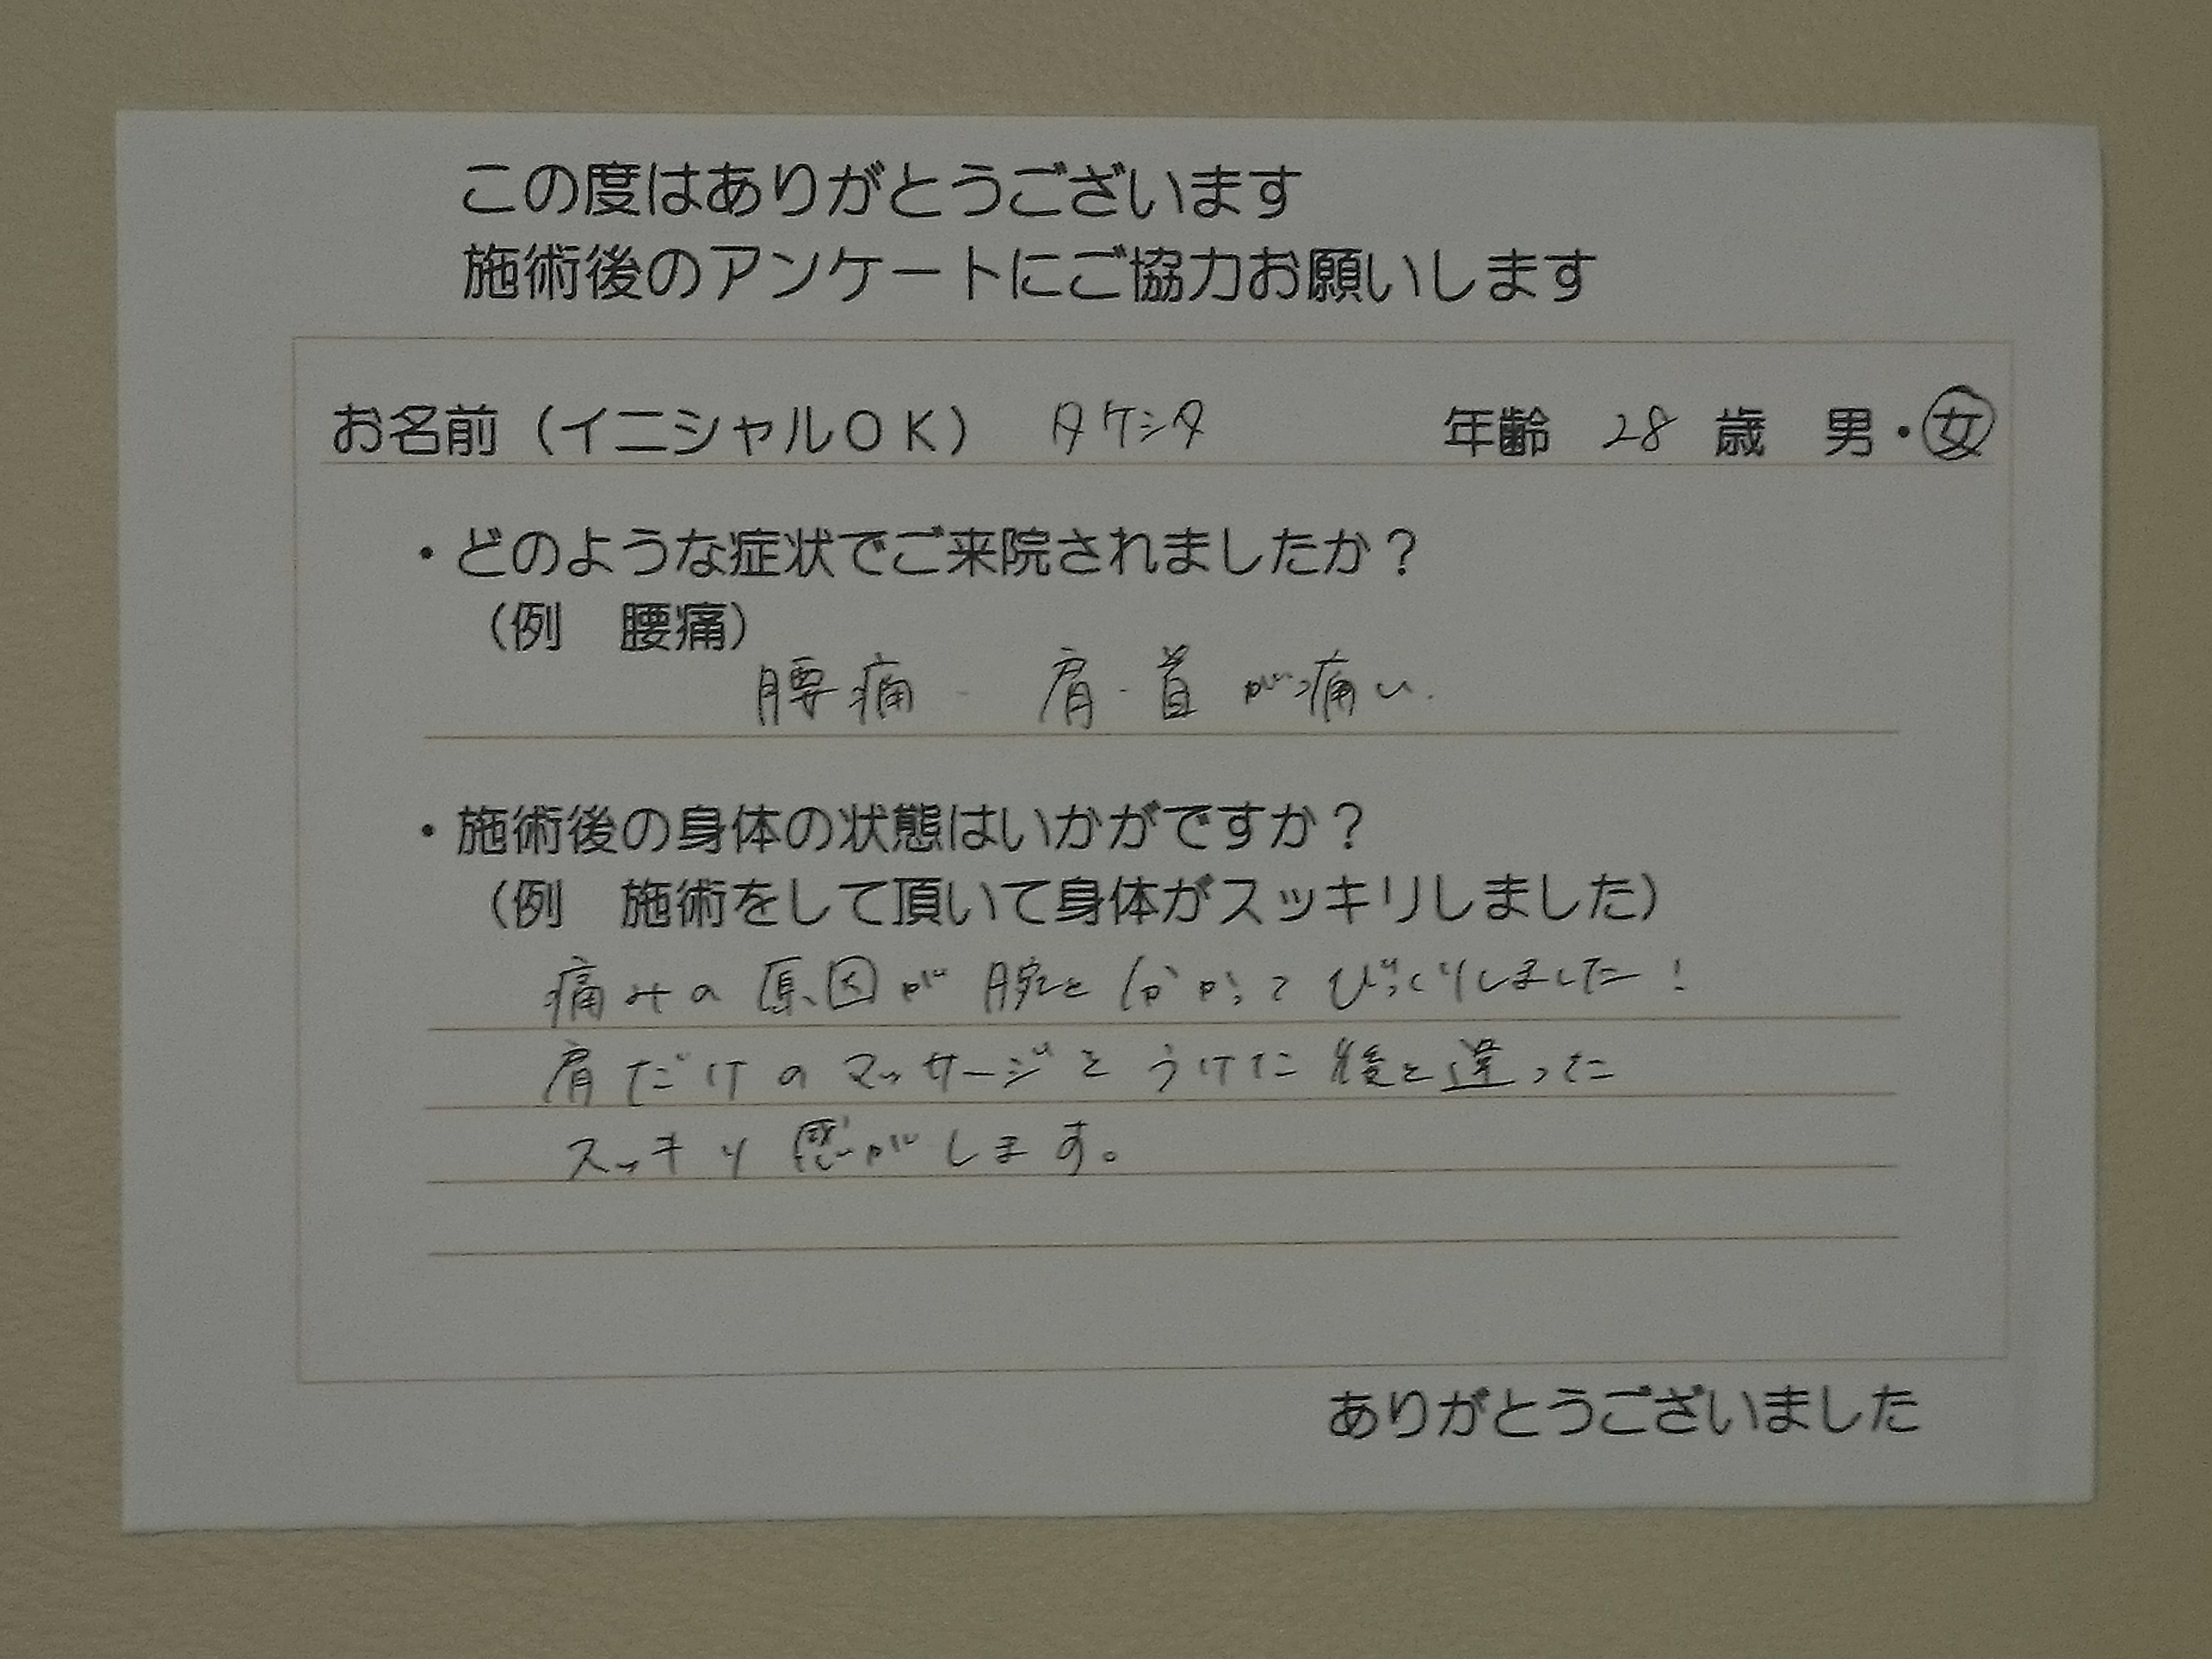 この度はありがとうございます
施術後のアンケートにご協力お願いします
お名前（イニシャルＯＫ） タケシタ 年齢 28 歳 男・女
・どのような症状でご来院されましたか？
（例　腰痛）
腰痛・肩・首が痛い.
・施術後の身体の状態はいかがですか？
（例　施術をして頂いて身体がスッキリしました）
痛みの原因が腕と分かってびっくりしました！
肩だけのマッサージをうけた後と違った
スッキリ感がします。
ありがとうございました